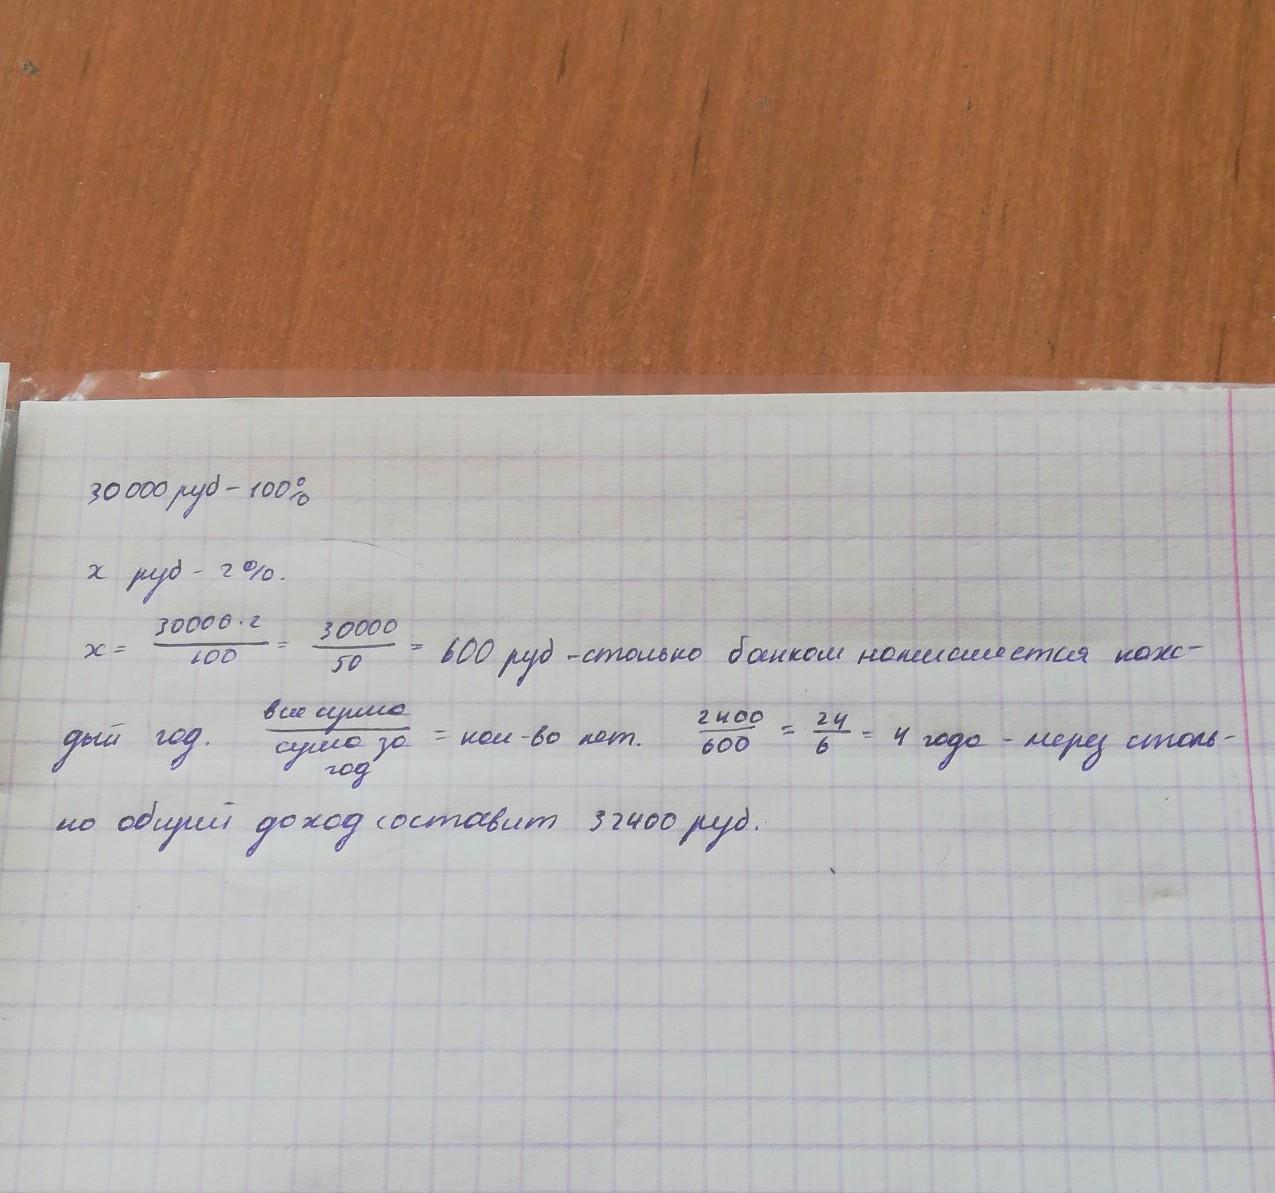 30000 руб - 100%
х руб - 2%.
х = 30000·2/100 = 30000/50 = 600 руб - столько банком начисляется каж-
дый год. вся сумма/сумма за год = кол-во лет. 2400/600 = 24/6 = 4 года - через столь-
ко общий доход составит 32400 руб.